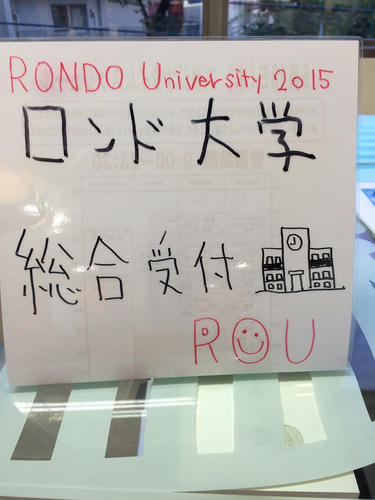 RONDO University 2015
ロンド大学
総合受付
ROU